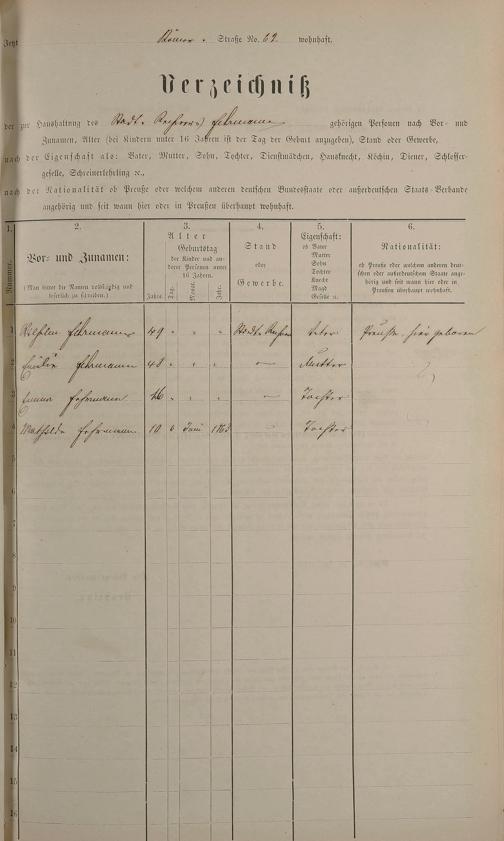 Jetzt
Römer- Straße No. 62 wohnhaft.
Verzeichniß
der zur Haushaltung des Stadt- Fehrmann gehörigen Personen nach Vor- und
Zunamen, Alter (bei Kindern unter 16 Jahren ist der Tag der Geburt anzugeben), Stand oder Gewerbe,
nach der Eigenschaft als: Vater, Mutter, Sohn, Tochter, Dienstmädchen, Hausknecht, Köchin, Diener, Schlosser-
geselle, Schreinerlehrling &c.,
nach der Nationalität ob Preuße oder welchem anderen deutschen Bundesstaate oder außerdeutschen Staats-Verbande
angehörig und seit wann hier oder in Preußen überhaupt wohnhaft.
1. 2. 3. 4. 5. 6.
Nummer.
Vor- und Zunamen:
(Man bittet die Namen vollständig und
leserlich zu schreiben.)
Alter
Geburtstag
der Kinder und an-
derer Personen unter
16 Jahren.
Jahre. Tag. Monat. Jahr.
Stand
oder
Gewerbe.
Eigenschaft:
ob Vater
Mutter
Sohn
Tochter
Knecht
Magd
Geselle &c.
Nationalität:
ob Preuße oder welchem anderen deut-
schen oder außerdeutschen Staate ange-
hörig und seit wann hier oder in
Preußen überhaupt wohnhaft.
1 Wilhelm Fehrmann 49 " " " Stadt- Vater Preuße hier geboren
2 Emilie Fehrmann 48 " " " — Mutter
3 Emma Fehrmann " " " — Tochter
4 Mathilde Fehrmann 10 6 Juni 1863 — Tochter
5
6
7
8
9
10
11
12
13
14
15
16